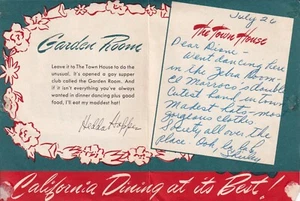 Garden Room
Leave it to The Town House to do the
unusual. It's opened a gay supper
club called the Garden Room. And
if it isn't everything you've always
wanted in dinner dancing plus good
food, I'll eat my maddest hat!
Hedda Hopper
July 26
The Town House
Dear Diane -
Went dancing here
in the Zebra Room -
El Morocco's
cutest band in town
Maddest hats - most
gorgeous clothes
all over the
place. Ooh,
California Dining at its Best!